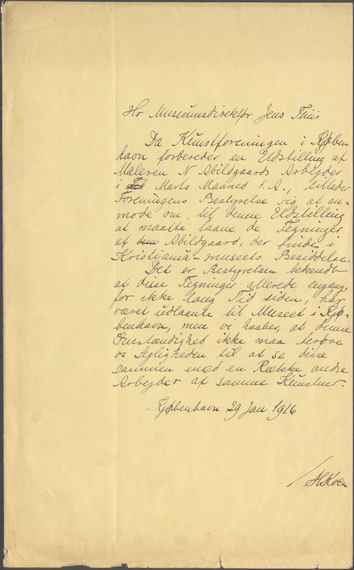 Hr Museumsdirektør Jens Thiis
Da Kunstforeningen i Kjøben-
havn forbereder en Udstilling af
Maleren N Abildgaards Arbejder
i Marts Maaned d. A., tillader
Foreningens Bestyrelse sig at an-
mode om til denne Udstilling
at maatte laane de Tegninger
af Abildgaard, der findes i
Kristiania-museets Besiddelse.
Det er Bestyrelsen bekendt
at disse Tegninger allerede engang,
for ikke lang Tid siden, har
været udlaante til Museet i Kjø-
benhavn, men vi haaber, at denne
Omstændighed ikke maa berøve
os Lejligheden til at se disse
sammen med en Række andre
Arbejder af samme Kunstner.
Kjøbenhavn 29 Jan 1916